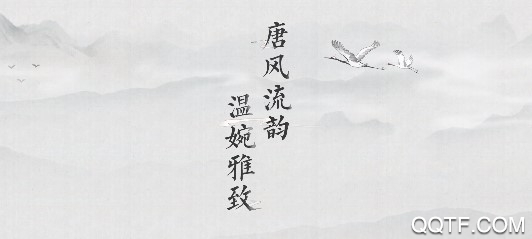 唐风流韵
温婉雅致
QQTF.COM